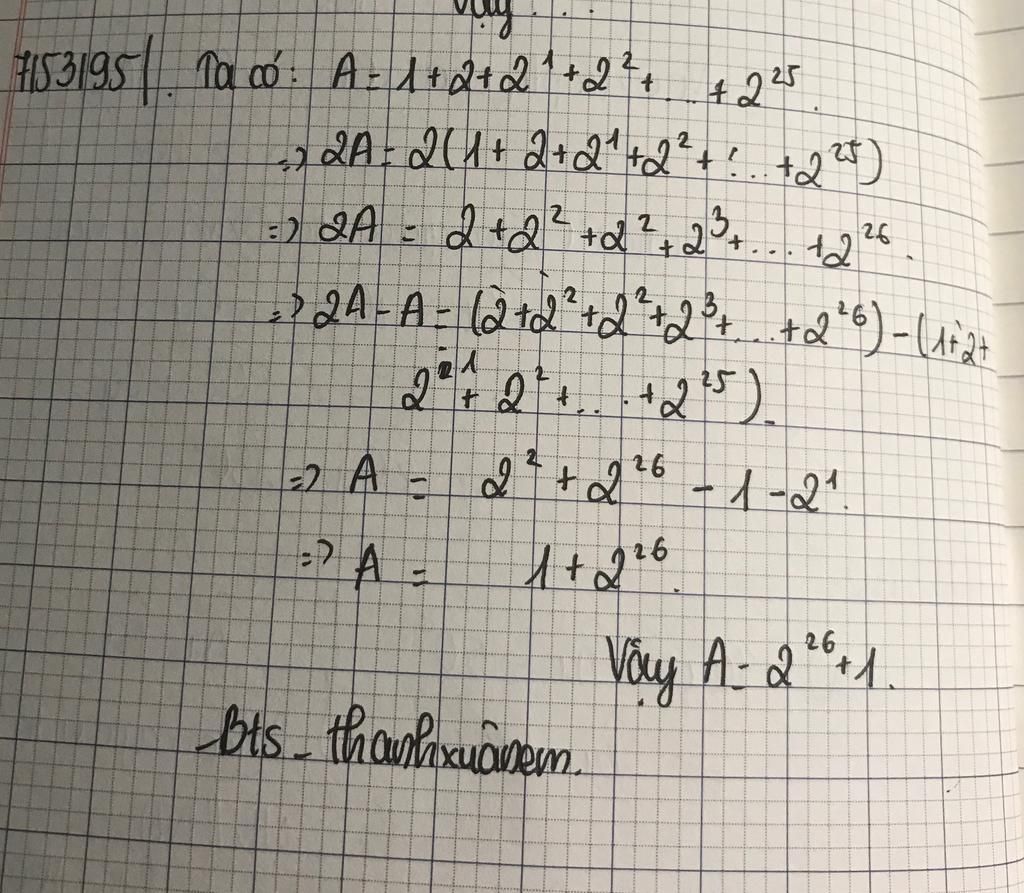 Vậy...
7153195|. Ta có: A = 1 + 2 + 2¹ + 2² + ... + 2²⁵.
=> 2A = 2(1 + 2 + 2¹ + 2² + ... + 2²⁵)
=> 2A = 2 + 2² + 2² + 2³ + ... + 2²⁶.
=> 2A - A = (2 + 2² + 2² + 2³ + ... + 2²⁶) - (1 + 2 +
2¹ + 2² + ... + 2²⁵).
=> A = 2² + 2²⁶ - 1 - 2¹.
=> A = 1 + 2²⁶.
Vậy A = 2²⁶ + 1.
-Bts_thanhxuânem.